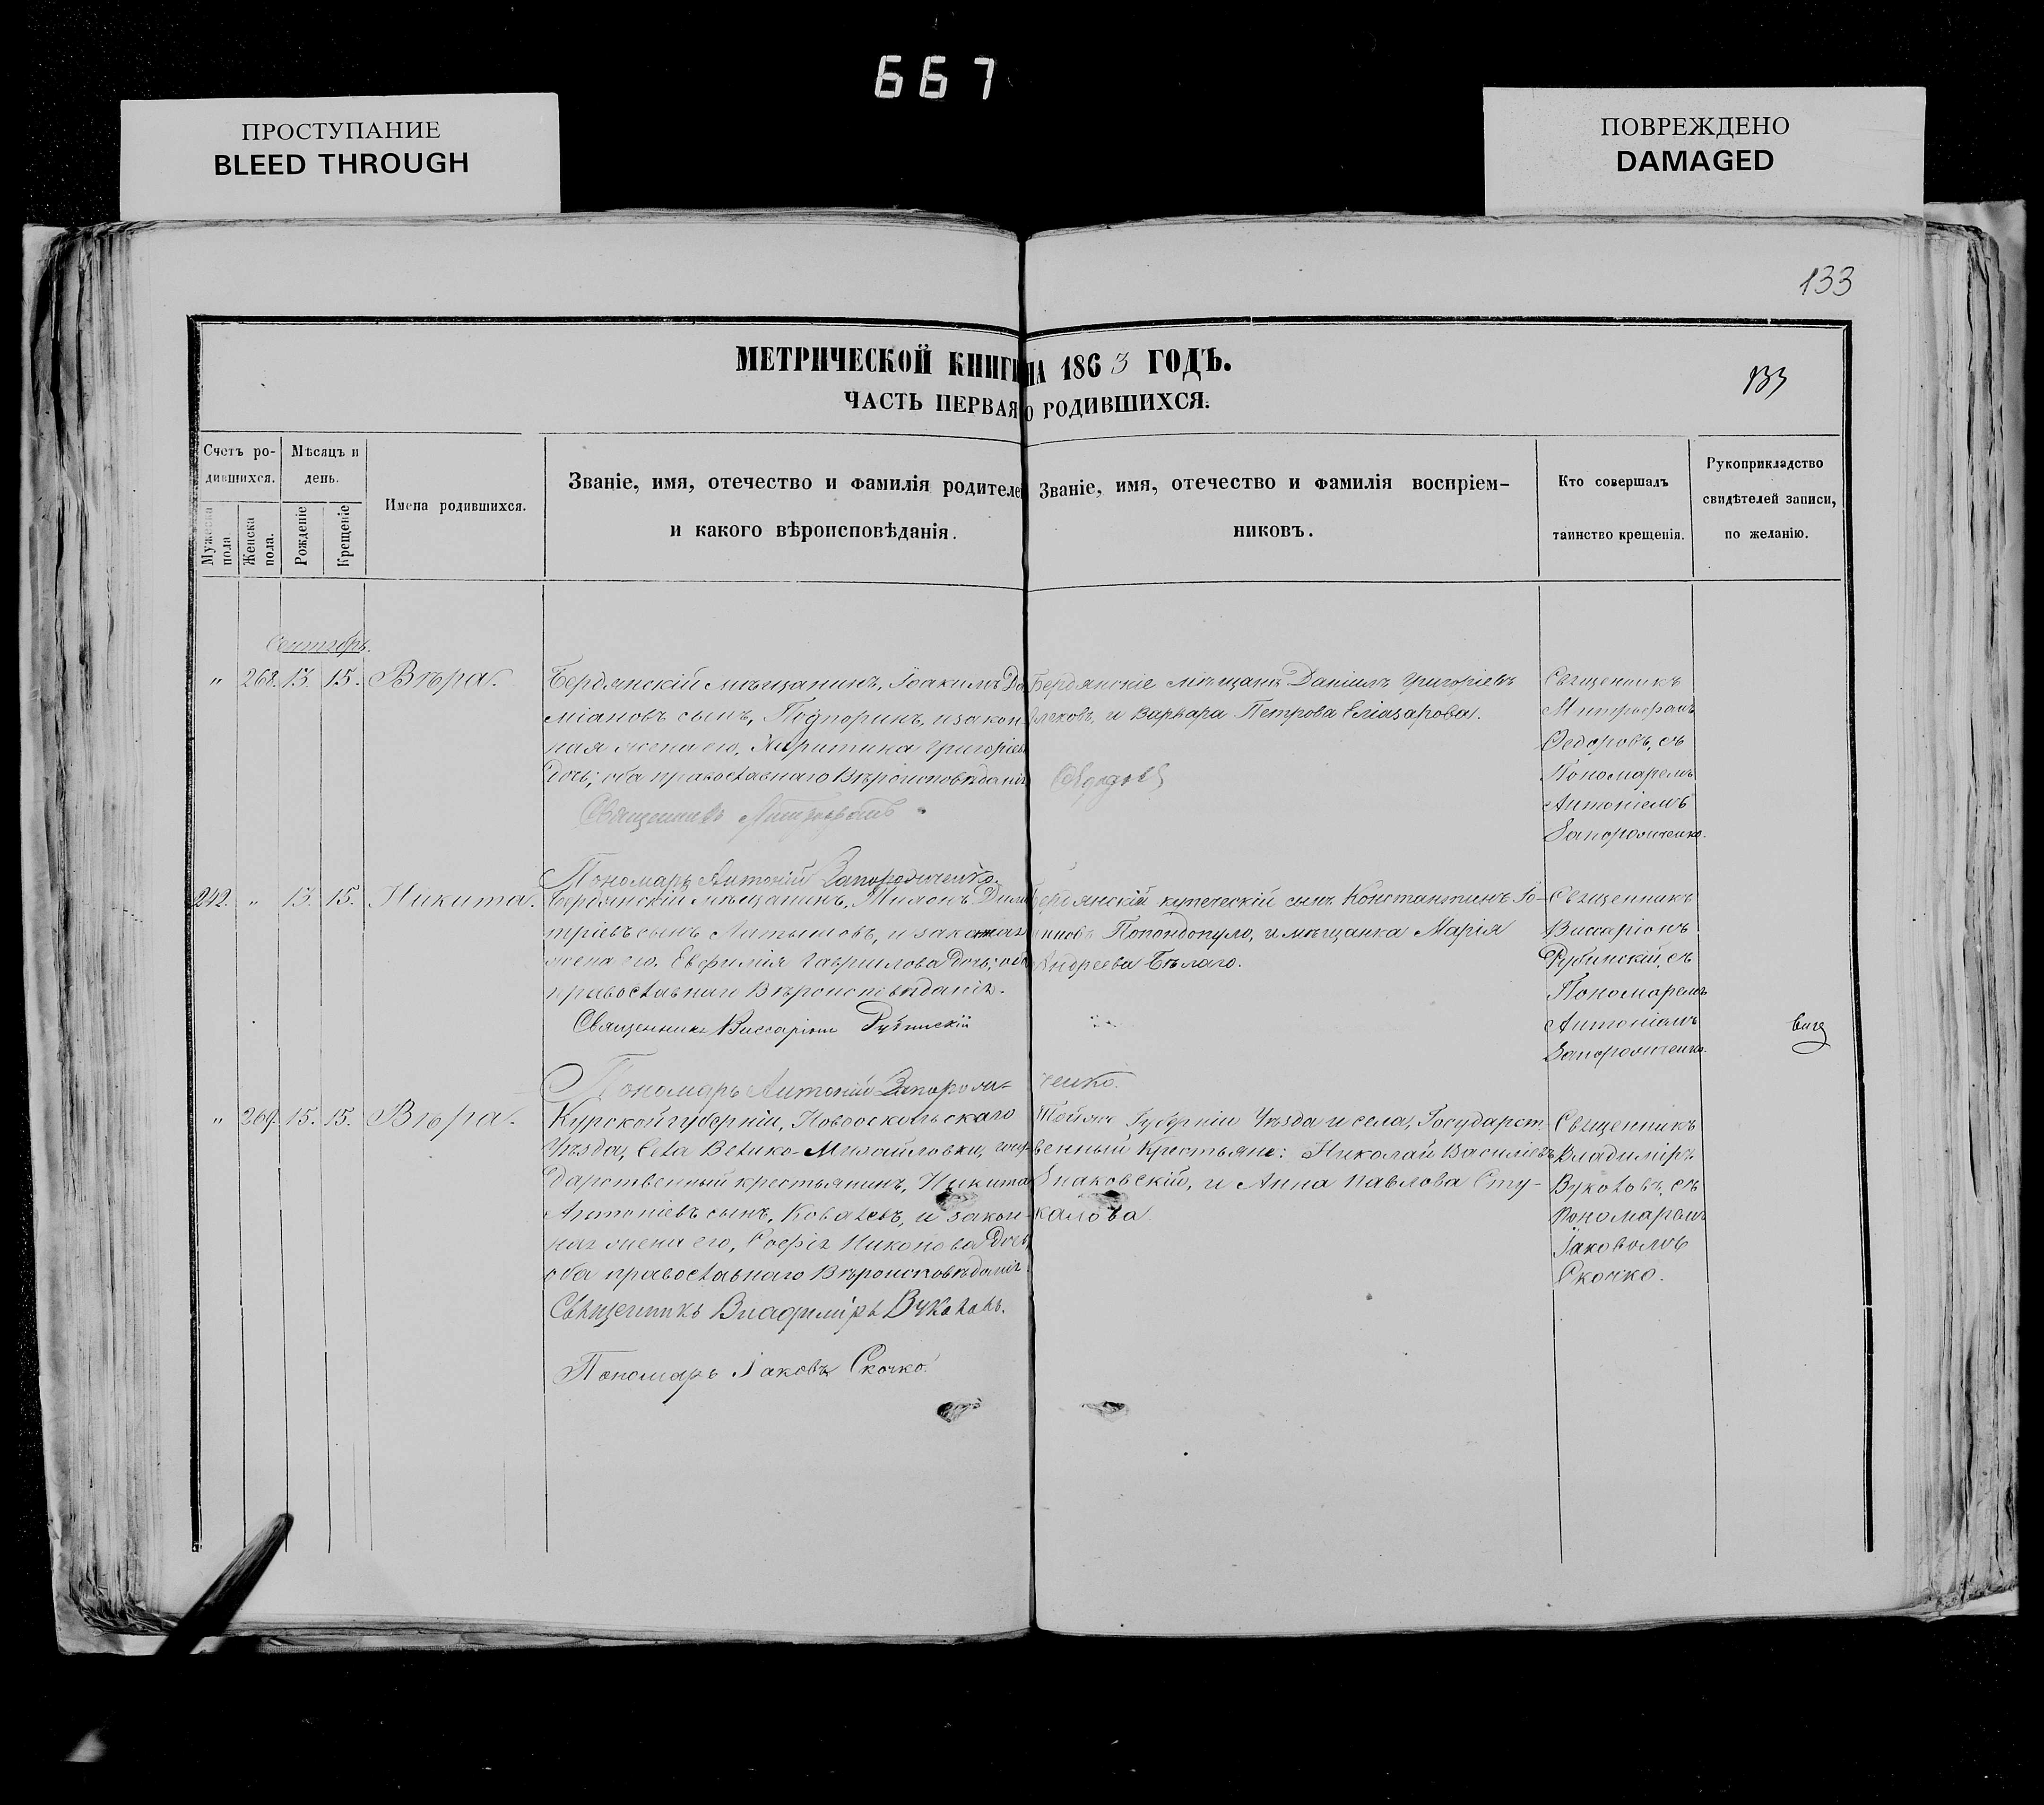 667
ПРОСТУПАНИЕ
BLEED THROUGH
ПОВРЕЖДЕНО
DAMAGED
133
МЕТРИЧЕСКОЙ КНИГИ НА 1863 ГОДЪ.
133
ЧАСТЬ ПЕРВАЯ О РОДИВШИХСЯ.
Счетъ ро-
дившихся.
Мужеска
пола
Женска
пола.
Мѣсяцъ и
день.
Рожденіе
Крещеніе
Имена родившихся.
Званіе, имя, отечество и фамилія родителей
и какого вѣроисповѣданія.
Званіе, имя, отечество и фамилія воспріем-
никовъ.
Кто совершалъ
таинство крещенія.
Рукоприкладство
свидѣтелей записи,
по желанію.
Сентябрь.
" 268. 13. 15. Вѣра.
Бердянскій мѣщанинъ, Іоакимъ Да
міановъ сынъ, Подпоринъ, и закон-
ная жена его, Григоріев
дочь; оба православнаго вѣроисповѣданія
Священникъ Митрофанъ
Пономарь Антоній Запорожченко.
Бердянскіе мѣщане Даніилъ Григоріевъ
и Варвара Петрова Еліазарова.
Ѳедоровъ
Священникъ
Митрофанъ
Ѳедоровъ, съ
Пономаремъ
Антоніемъ
Запорожченко.
242. " 13. 15. Никита.
Бердянскій мѣщанинъ, Милонъ Дими
тріевъ сынъ Литвиновъ, и законная
жена его Евфимія Гавриилова дочь; оба
православнаго вѣроисповѣданія.
Священникъ Виссаріонъ Рубинскій
Пономарь Антоній Запорож-
Бердянскій купеческій сынъ Константинъ Іо-
анновъ Попондопуло, и мѣщанка Марія
Андреева Бѣлаго.
ченко.
Священникъ
Виссаріонъ
Рубинскій, съ
Пономаремъ
Антоніемъ
Запорожченко.
" 269. 15. 15. Вѣра.
Курской губерніи, Новооскольскаго
Уѣзда, села Велико-Михайловки, госу-
дарственный крестьянинъ, Никита
Антоніевъ сынъ, Ковалевъ, и закон-
ная жена его, Софія Никонова дочь,
оба православнаго вѣроисповѣданія.
Священникъ Владиміръ Вуколовъ.
Пономарь Іаковъ Скочко.
Той же Губерніи Уѣзда и села, Государст
венный Крестьяне: Николай Василіевъ
Знаковскій, и Анна Павлова Сту-
калова
Священникъ
Владиміръ
Вуколовъ, съ
Пономаремъ
Іаковомъ
Скочко.